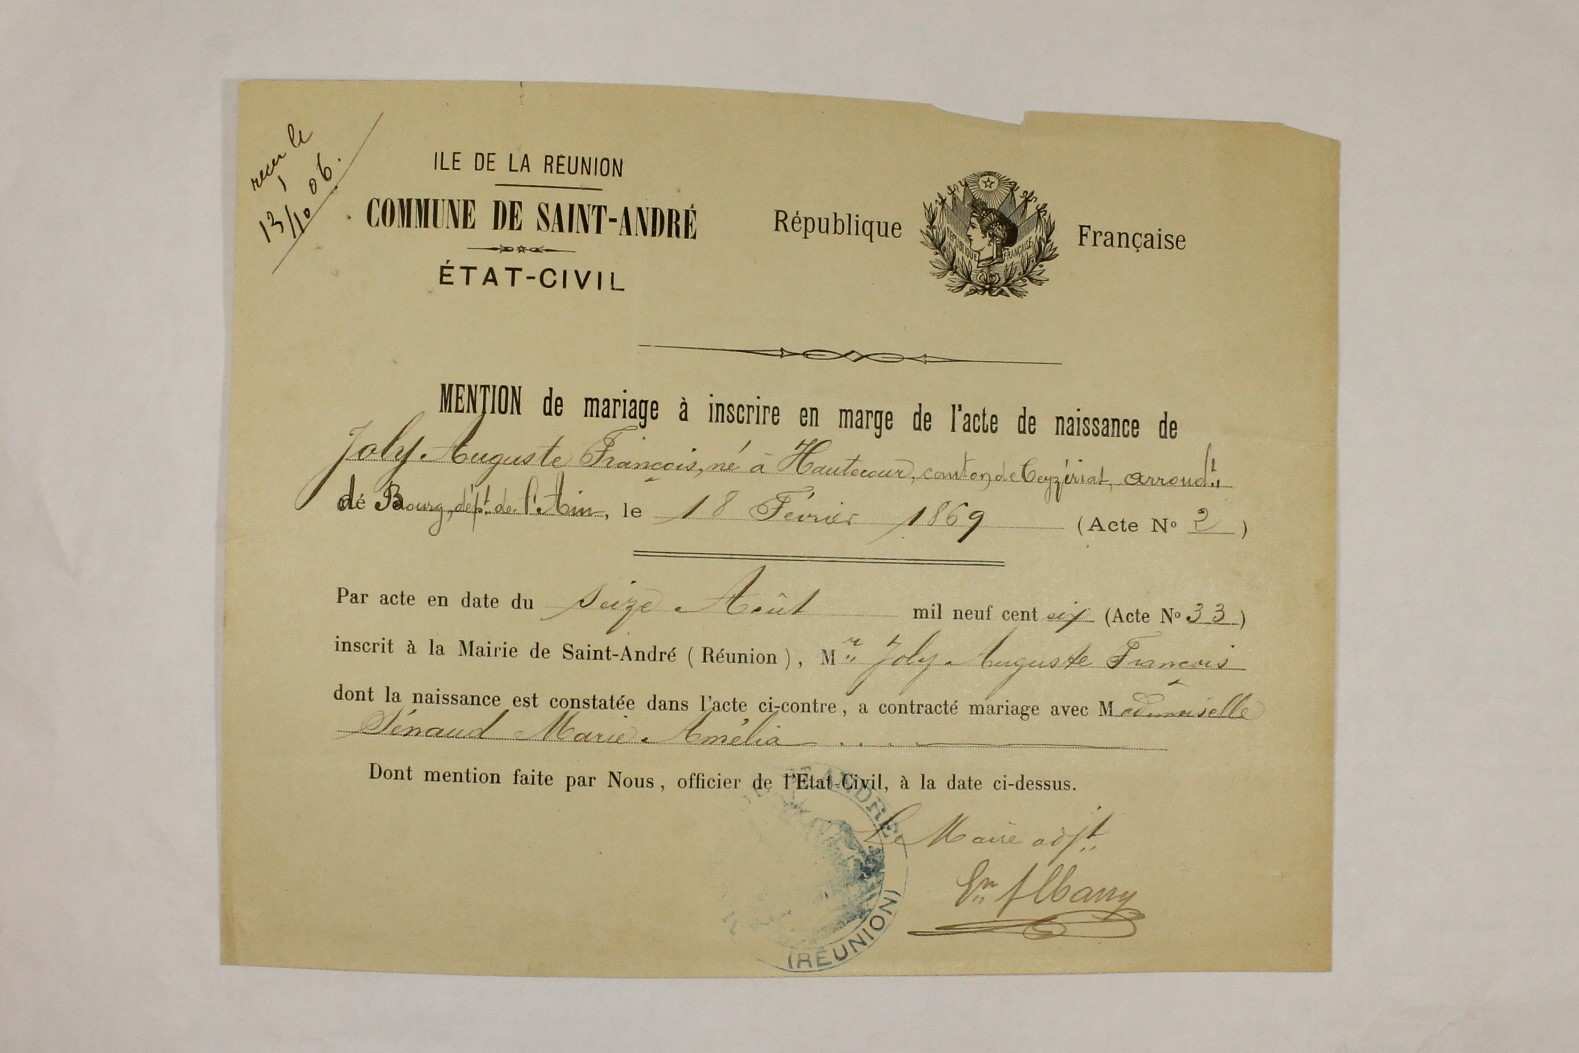 reçu le
13/10 06.
ILE DE LA RÉUNION
COMMUNE DE SAINT-ANDRÉ
ÉTAT-CIVIL
République Française
RÉPUBLIQUE FRANÇAISE
MENTION de mariage à inscrire en marge de l'acte de naissance de
Joly Auguste François, né à Hautecour, canton de Ceyzériat, arrondt
de Bourg, dépt. de l'Ain, le 18 Février 1869 (Acte No 2)
Par acte en date du Seize Août mil neuf cent six (Acte No 33)
inscrit à la Mairie de Saint-André (Réunion), Mr Joly Auguste François
dont la naissance est constatée dans l'acte ci-contre, a contracté mariage avec Mademoiselle
Sénaud Marie Amélia
Dont mention faite par Nous, officier de l'Etat-Civil, à la date ci-dessus.
Le Maire adjt
Albany
ANDRÉ
(RÉUNION)